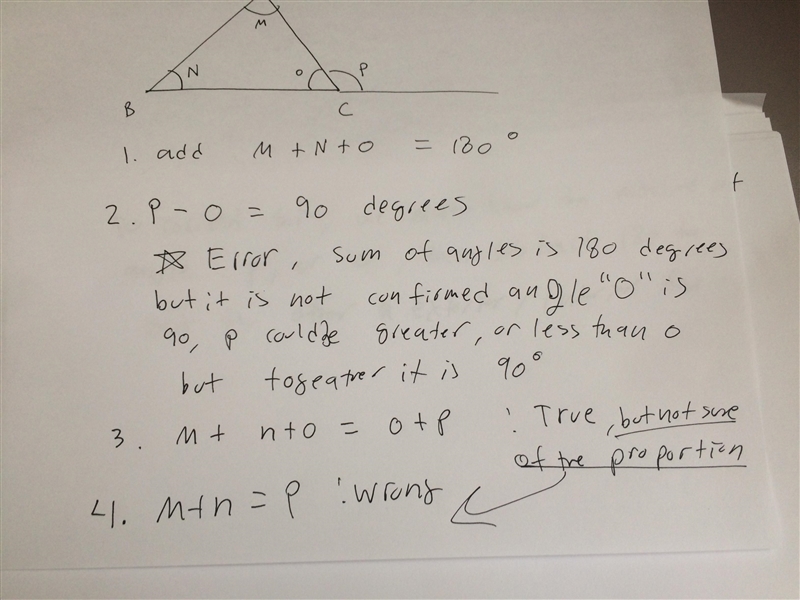 M
N
O
P
B
C
1. add M + N + O = 180°
2. P - O = 90 degrees
Error, sum of angles is 180 degrees
but it is not confirmed angle "O" is
90, p could be greater, or less than o
but togeather it is 90°
3. m + n + o = o + p : True, but not sure
of the proportion
4. m + n = p : wrong